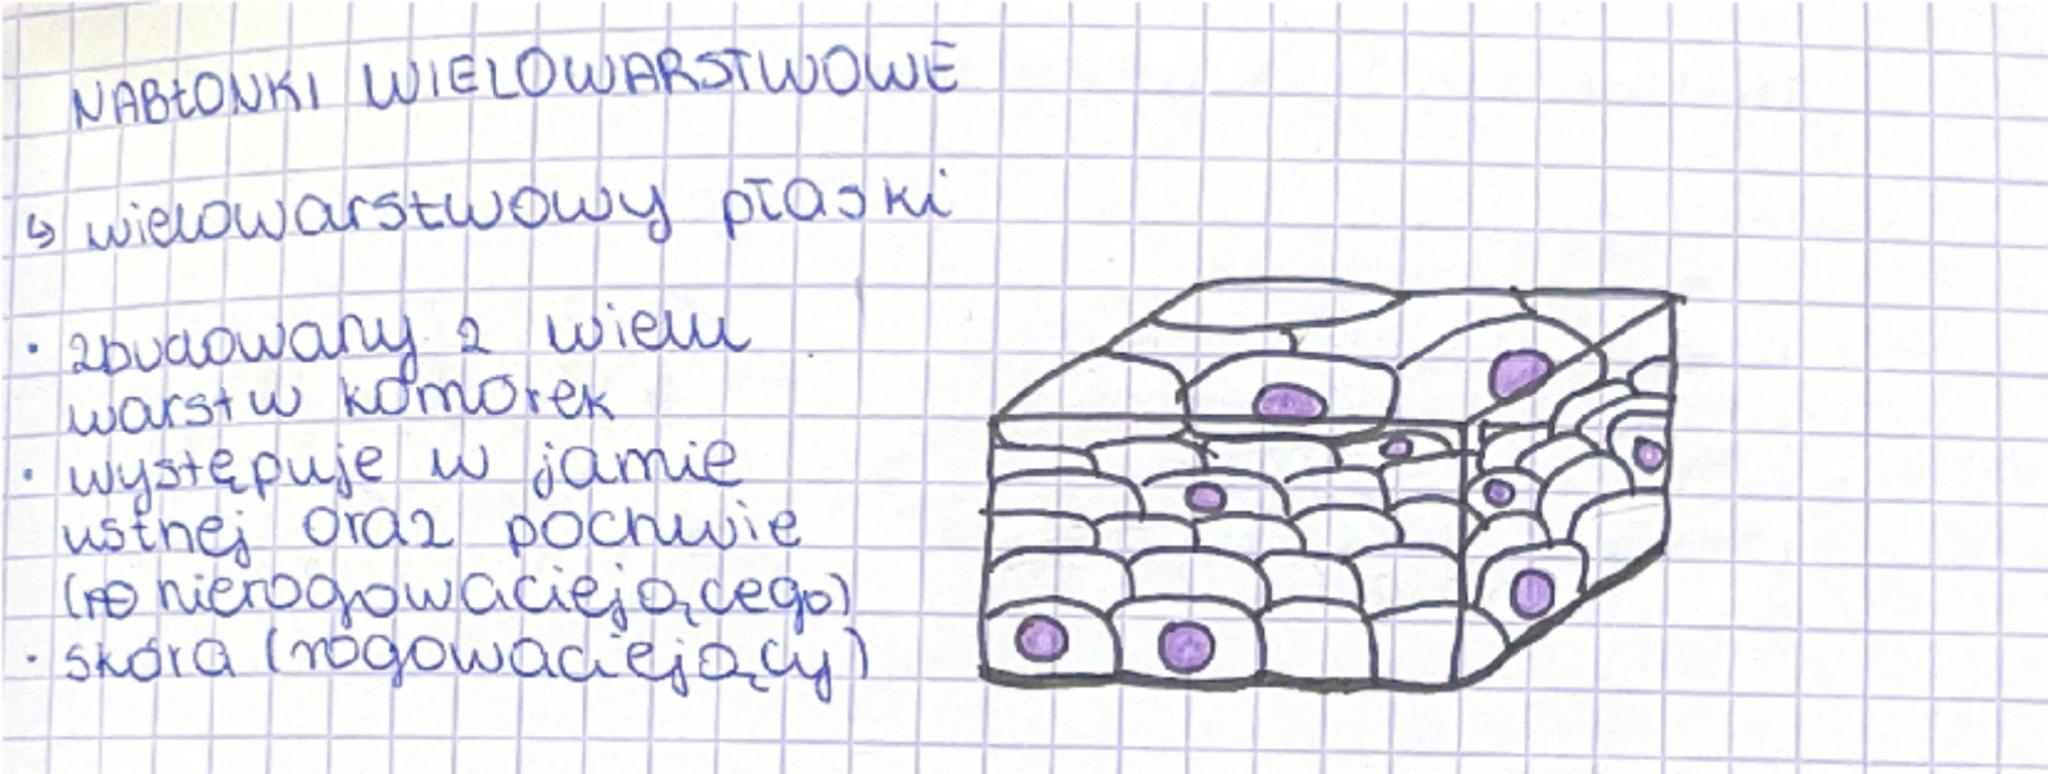 NABŁONKI WIELOWARSTWOWE
↳ wielowarstwowy płaski
• zbudowany z wielu
warstw komórek
• występuje w jamie
ustnej oraz pochwie
(nierogowaciejącego)
• skóra (rogowaciejący)